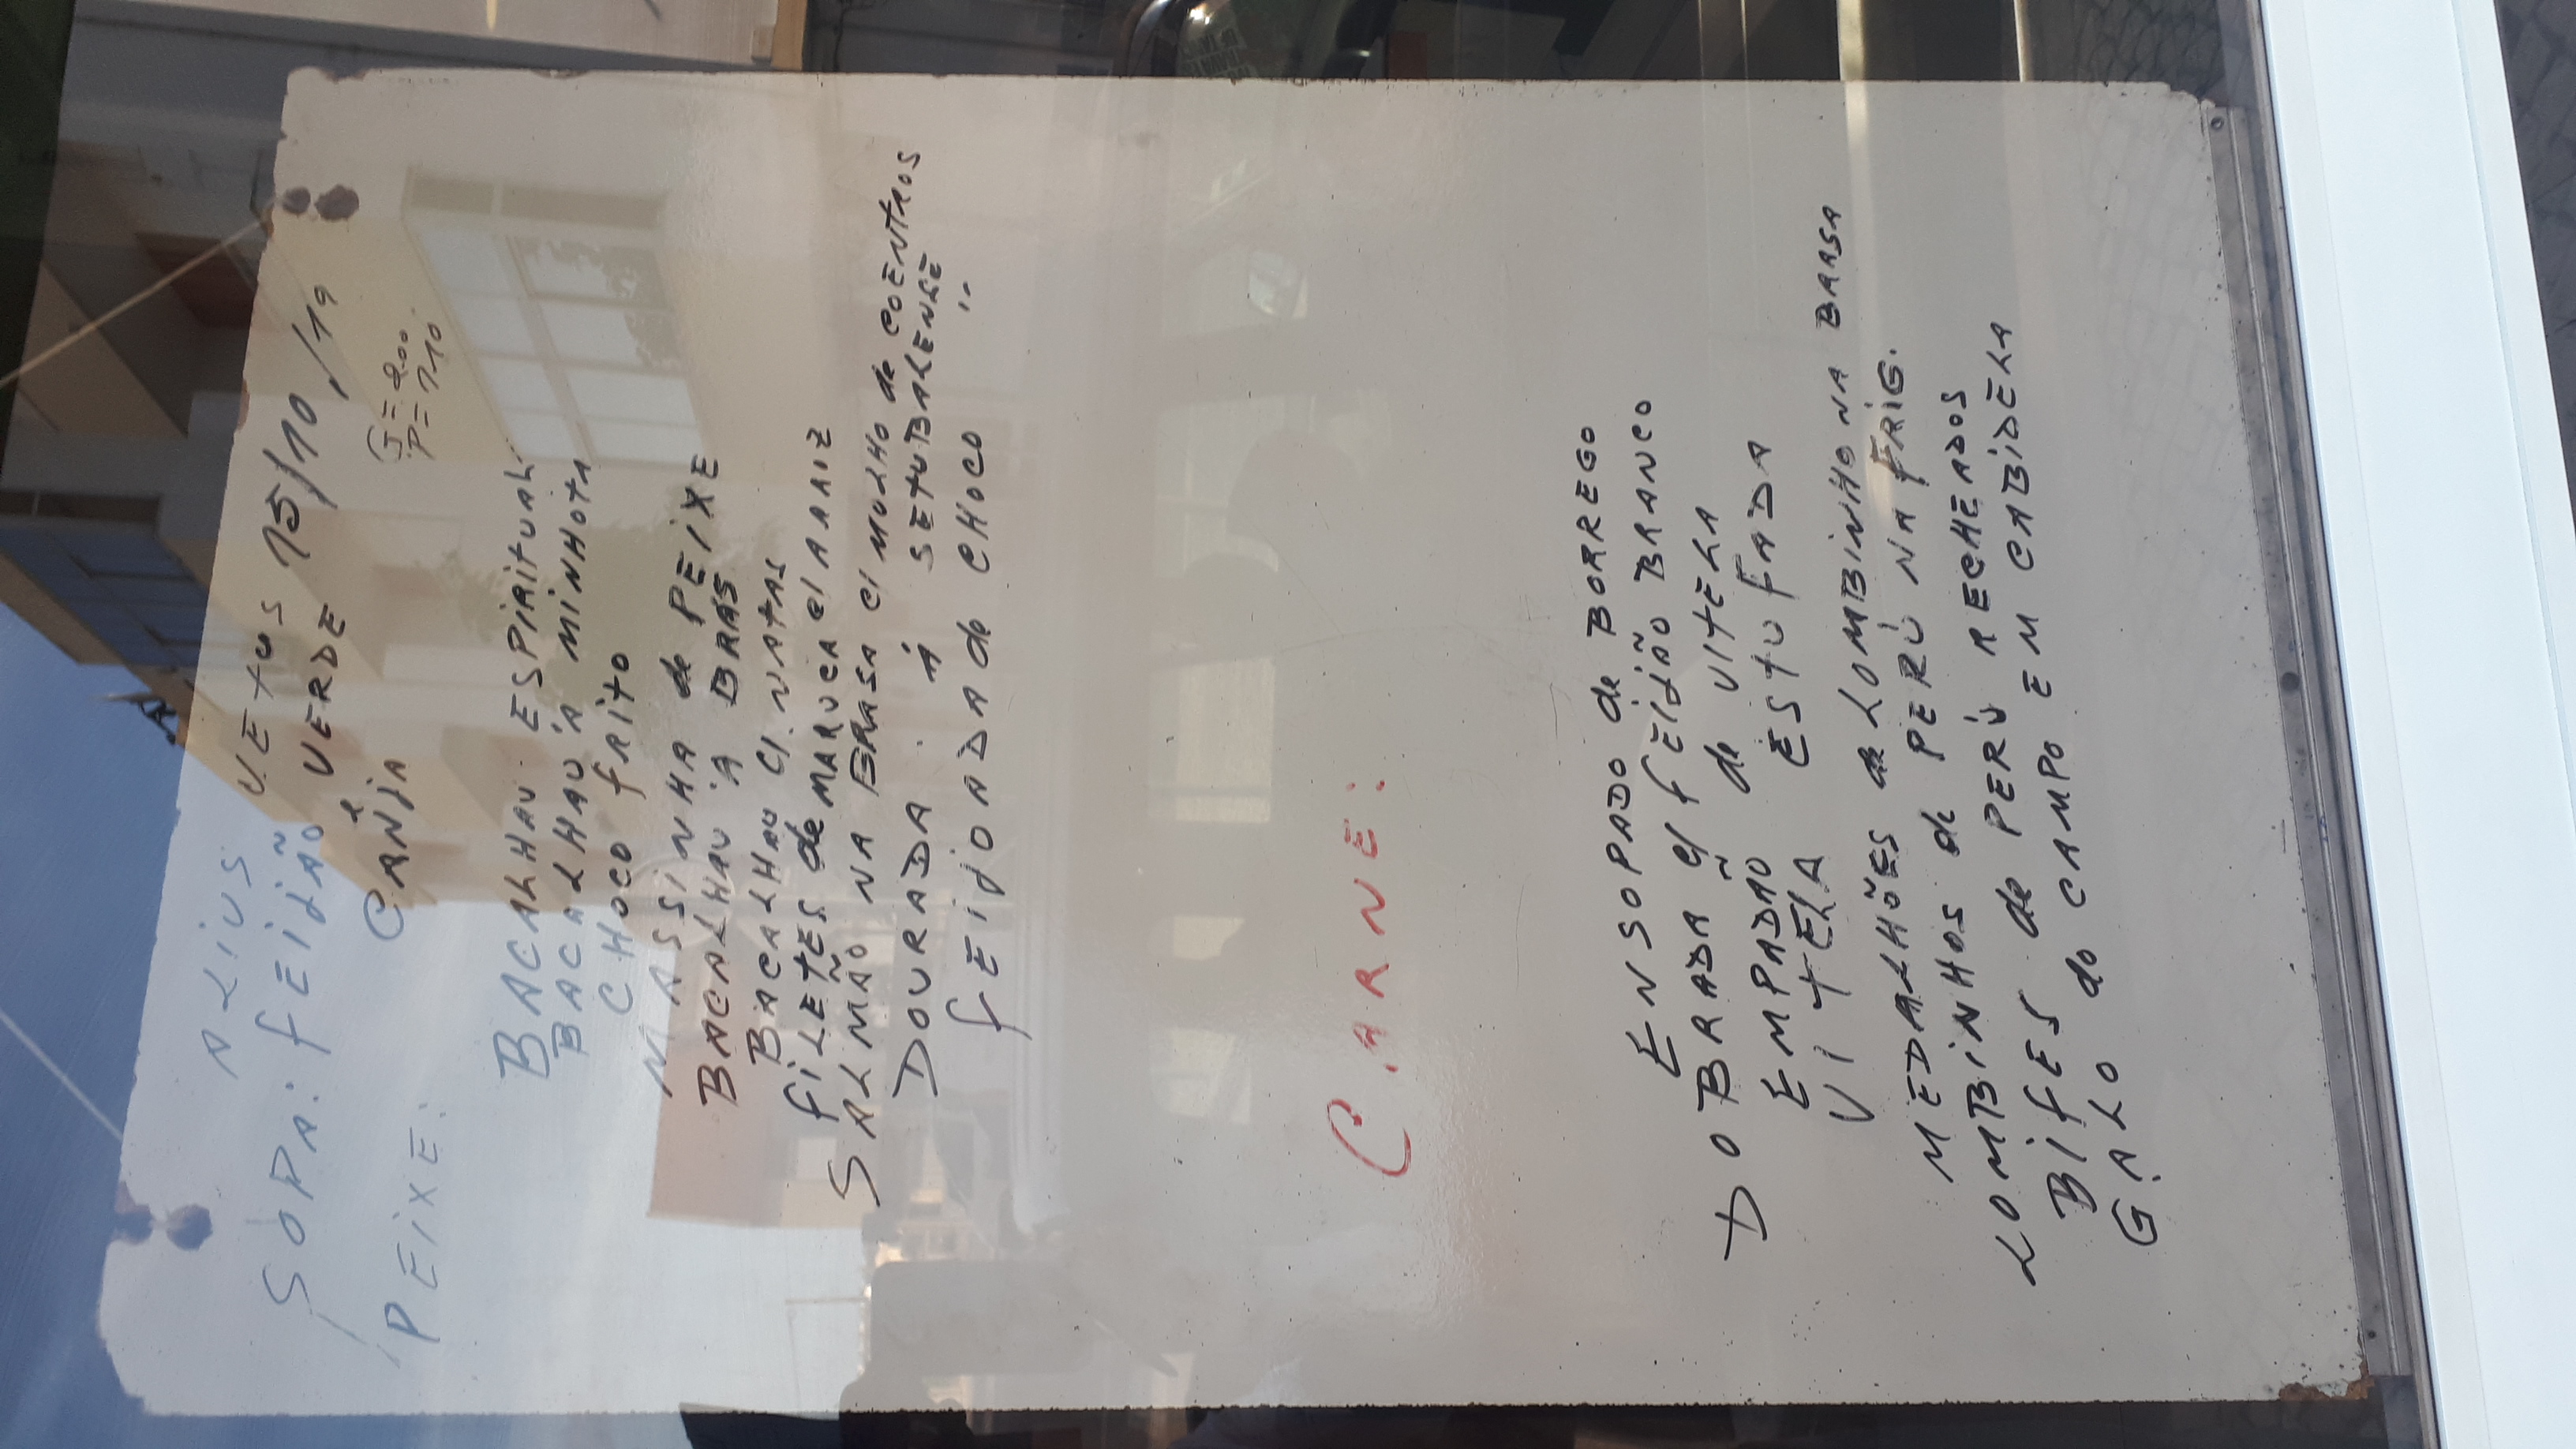 ALIUS VEtUS 15/10/19
SOPA: fEIJÃO VERDE
e CANjA
G = 200
P = 110
PEiXE:
BACALHAU ESPIRITUAL
BACALHAU À MINHOTA
CHOCO fRito
MASSiNHA de PEIXE
BACALHAU À BRÁS
BACALHAU C/. NATAS
fiLEtES de MARUCA C/ ARROZ
SALMÃO NA BRASA C/ MOLHO de COENTROS
DOURADA . À SETUBALENSE
fEijOADA de CHOCO ''
CARNE:
ENSOPADO de BORREGO
DOBRADA C/ fEIJÃO BRANCO
EMPADÃO de VITELA
VITELA ESTUFADA
MEDALHÕES de LOMBINHO NA BRASA
LOMBiNHOS de PERÚ NA FRiG.
BifES de PERÚ RECHEADOS
GALO do CAMPO EM CABiDELA